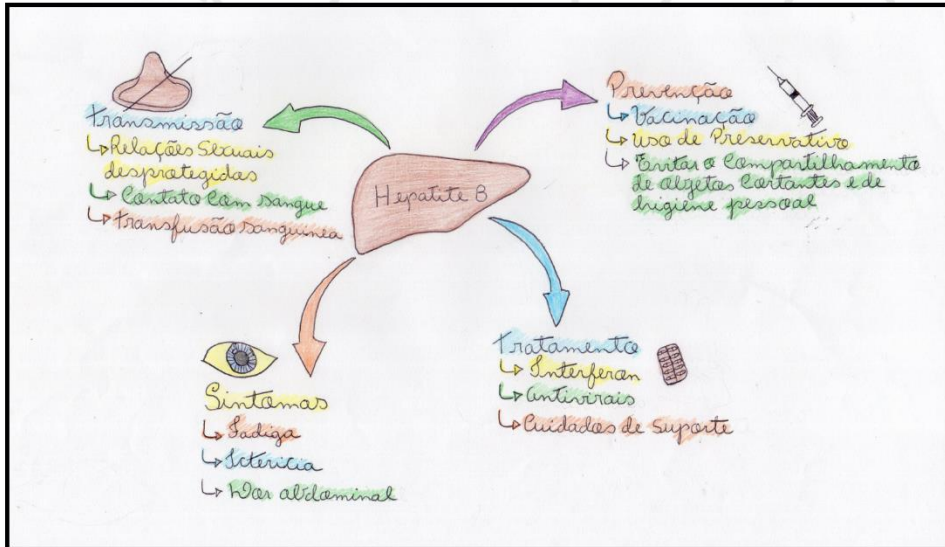 Hepatite B
Transmissão
↳Relações Sexuais
desprotegidas
↳Contato com sangue
↳Transfusão sanguínea
Prevenção
↳Vacinação
↳Uso de Preservativo
↳Evitar o Compartilhamento
de objetos Cortantes e de
higiene pessoal
Sintomas
↳Fadiga
↳Icterícia
↳Dor abdominal
Tratamento
↳Interferon
↳Antivirais
↳Cuidados de suporte